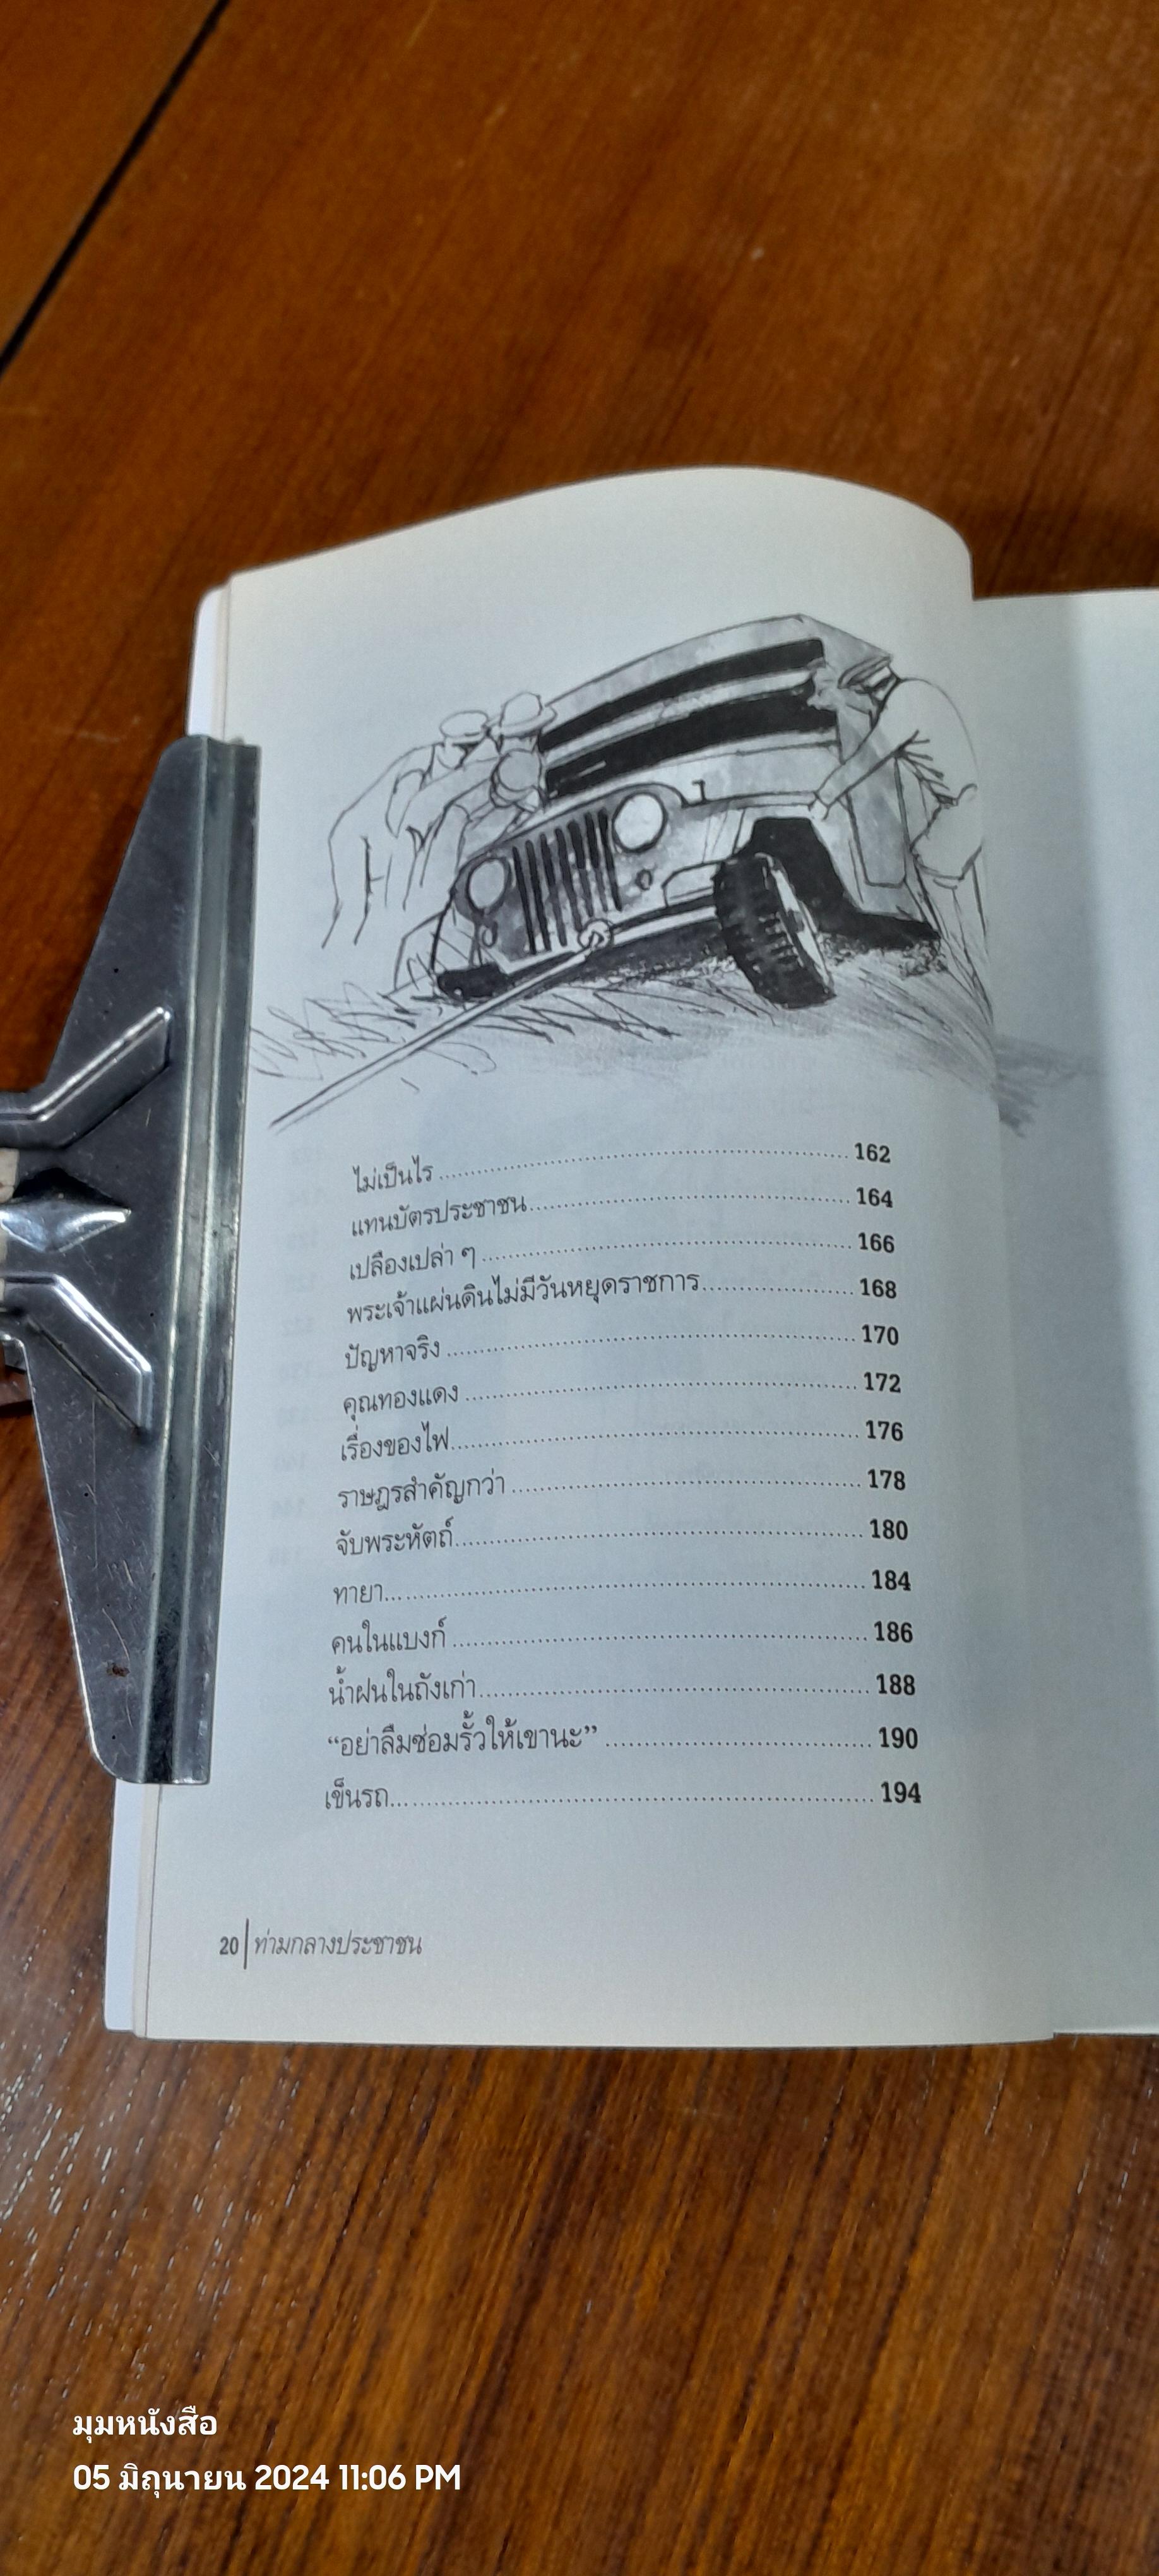 ไม่เป็นไร ........ 162
แทนบัตรประชาชน ........ 164
เปลืองเปล่า ๆ ........ 166
พระเจ้าแผ่นดินไม่มีวันหยุดราชการ ........ 168
ปัญหาจริง ........ 170
คุณทองแดง ........ 172
เรื่องของไฟ ........ 176
ราษฎรสำคัญกว่า ........ 178
จับพระหัตถ์ ........ 180
ทายา ........ 184
คนในแบงก์ ........ 186
น้ำฝนในถังเก่า ........ 188
“อย่าลืมซ่อมรั้วให้เขานะ” ........ 190
เข็นรถ ........ 194
20 | ท่ามกลางประชาชน
มุมหนังสือ
05 มิถุนายน 2024 11:06 PM